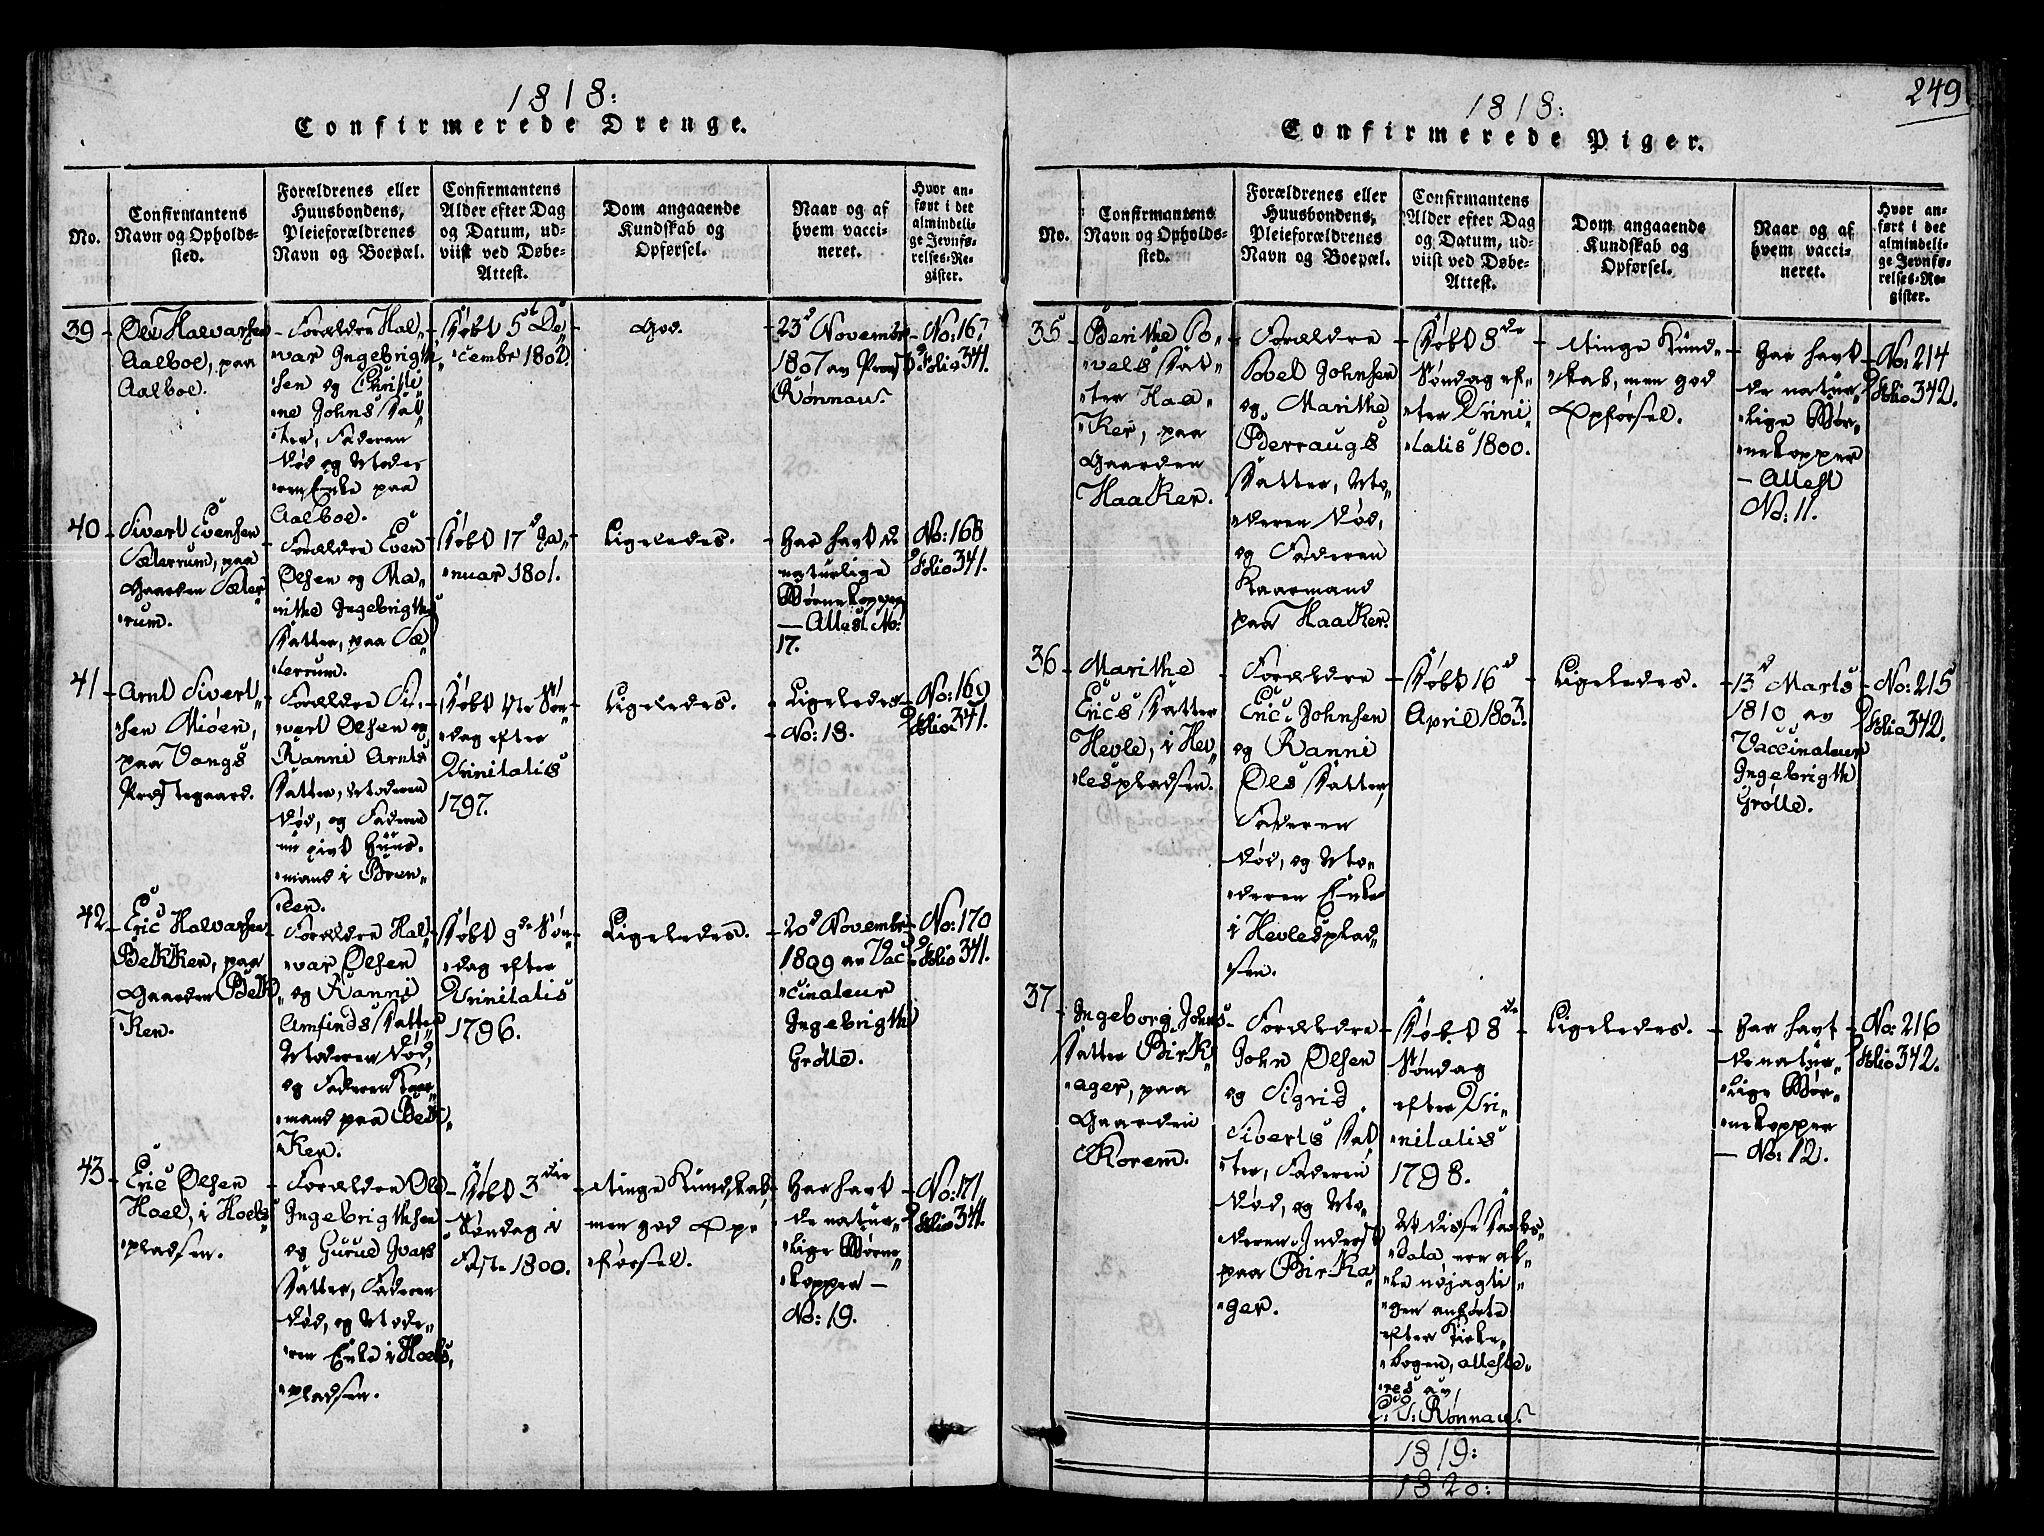 1818:
Confirmerede Drenge.
No.
Confirmantens
Navn og Opholds-
sted.
Forældrenes eller
Huusbondens,
Pleieforældrenes
Navn og Boepæl.
Confirmantens
Alder efter Dag
og Datum, ud-
viist ved Døbe-
Attest.
Dom angaaende
Kundskab og
Opførsel.
Naar og af
hvem vacci-
neret.
Hvor an-
ført i det
almindeli-
ge Jevnfø-
relses-Re-
gister.
39
Ole Halvarsen
Aalboe, paa
Aalboe.
Forældre Hal-
var Ingebrigth
sen og Christi
ne Johns Dat
ter, Faderen
død og Mode
ren Enke paa
Aalboe.
Døbt 5t De
cembr 1802.
God.
23d Novembr
1807 av Provst
Rønnau.
No: 167
Folio 341.
40
Sivert Evensen
Sæterrum, paa
Gaarden Sæter
rum.
Forældre Even
Olsen og Ma
rithe Ingebrigths
Datter, paa Sæ
terrum.
Døbt 17d Ja
nuar 1801.
Ligeledes.
Har havt de
naturlige
Børnekopper
— Attest No:
17.
No: 168
Folio 341.
41
Arnt Sivert
sen Mioen,
paa Vangs
Prostegaard.
Forældre Si
vert Olsen og
Ranni Arnts
Datter, Moderen
død, og Faderen
nu givt Huus
mand i Bren
den.
Døbt Nte Søn
dag efter
Trinitatis
1797.
Ligeledes.
Ligeledes
No: 18.
No: 169
Folio 341.
42
Eric Halvarsen
Bekken, paa
Gaarden Bek
ken.
Forældre Hal
var Olsen
og Ranni
Amfinds Datter
Moderen død,
og Faderen Kaar
mand paa Bek
ken.
Døbt 9de Søn
dag efter
Trinitatis
1796.
Ligeledes.
20d Novembr
1809 av Vac
cinateur
Ingebrigth
Grölle.
No: 170
Folio 341.
43
Eric Olsen
Hoel, i Hoels
pladsen.
Forældre Ole
Ingebrigthsen
og Gurue Ivars
Datter, Faderen
død, og Mode
ren Enke i Hoels
pladsen.
Døbt 3die
Søndag i
Faste 1800.
Ringe Kundskab,
men god Op
førsel.
Har havt
de natur
lige Børne
kopper —
No: 19.
No: 171
Folio 341.
249
1818:
Confirmerede Piger.
No.
Confirmantens
Navn og Opholds-
sted.
Forældrenes eller
Huusbondens,
Pleieforældrenes
Navn og Boepæl.
Confirmantens
Alder efter Dag
og Datum, ud-
viist ved Døbe-
Attest.
Dom angaaende
Kundskab og
Opførsel.
Naar og af
hvem vacci-
neret.
Hvor an-
ført i det
almindeli-
ge Jevnfø-
relses-Re-
gister.
35
Berithe Po
vels Dat
ter Haa
ker, paa
Gaarden
Haaker.
Forældre
Povel Johnsen
og Marithe
Pderraugs
Datter, Mo
deren død,
og Faderen
Kaarmand
paa Haaker.
Døbt 8de
Søndag ef
ter Trini
tatis 1800.
Ringe Kund
skab, men god
Opførsel.
Har havt
de natur
lige Bør
nekopper
— Attest
No: 11.
No: 214
Folio 342.
36
Marithe
Erics Datter
Hevle, i Hev
lespladsen.
Forældre
Eric Johnsen
og Ranni
Ols Datter,
Faderen
død, og Mo
deren Enke
i Hevlesplad
sen.
Døbt 16d
April 1803.
Ligeledes.
13d Marts
1810, av
Vaccinateur
Ingebrigth
Grölle.
No: 215
Folio 342.
37
Ingeborg Johns
Datter Birk
ager, paa
Gaarden
Korem.
Forældre
John Olsen
og Sigrid
Siverts Dat
ter, Faderen
død, og Mo
deren Inderst
paa Birka
ger.
Døbt 8de
Søndag
efter Tri
nitatis
1798.
At disse Daabs
data ere al
le nøjagti
gen anførte
efter Kirke
bogen, atteste
res av
Rønnau.
Ligeledes.
Har havt
de natur
lige Bør
nekopper
— No: 12.
No: 216
Folio 342.
1819:
1820: